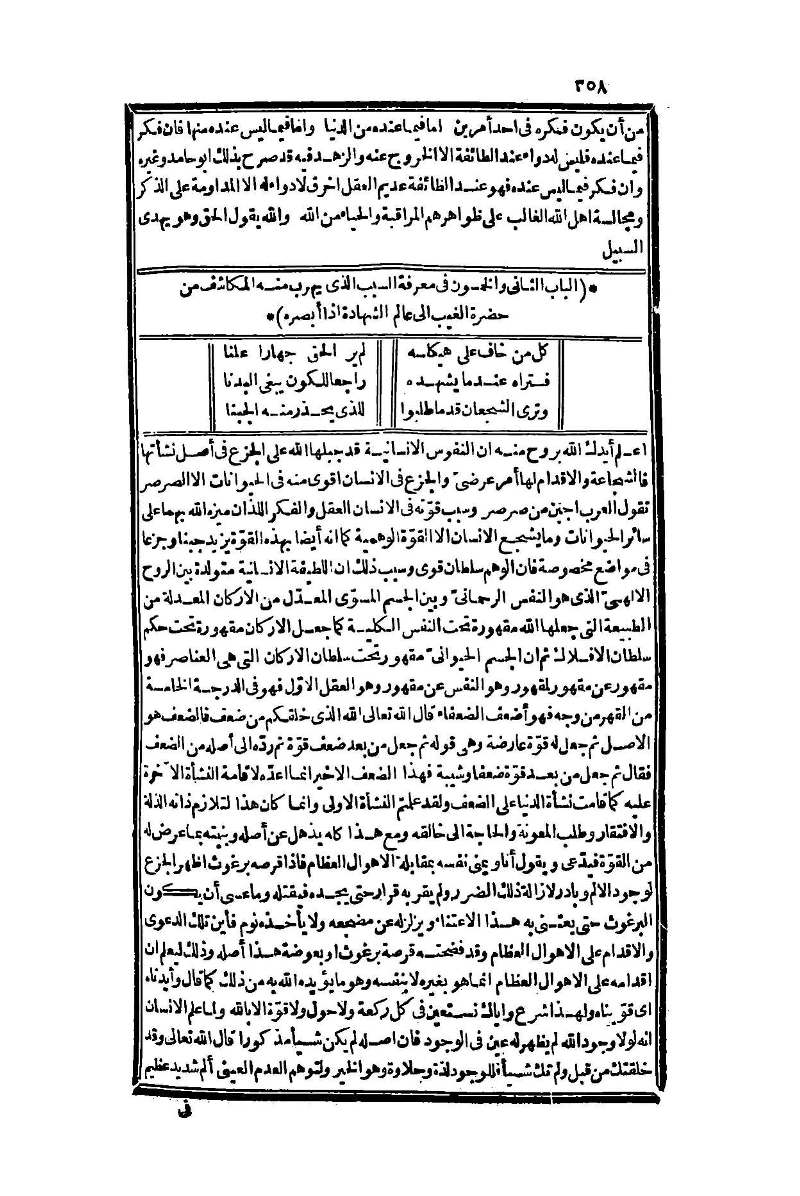 ٣٥٨
امن أن يكون فكره فى احد أمرين اما فيما عنده من الدنيا واما فيما ليس عنده منها فان فكر
فيما عنده فليس له دواء عند الطائفة الا الخروج عنه والزهد فيه قد صرح بذلك ابو حامد وغيره
وان فكر فيما ليس عنده فهو عند الطائفة عديم العقل اخرق لا دواء له الا المداومة على الذكر
ومجالسة اهل الله الغالب على ظواهرهم المراقبة والحياء من الله والله يقول الحق وهو يهدى
السبيل
*(الباب الثانى والخمسون فى معرفة السبب الذى يهرب منه المكاشف من
حضرة الغيب الى عالم الشهادة اذا أبصره)*
كل من خاف على هيكله لم ير الحق جهارا علنا
فتراه عندما يشهده راجعا للكون يبغى البدنا
وترى الشجعان قدما طلبوا للذى يحذر منه الجبنا
اعلم أيدك الله بروح منه ان النفوس الانسانية قد جبلها الله على الجزع فى أصل نشأتها
فالشجاعة والاقدام لها أمر عرضى والجزع فى الانسان اقوى منه فى الحيوانات الا الصرصر
تقول العرب اجبن من صرصر وسبب قوّته فى الانسان العقل والفكر اللذان ميزه الله بهما على
سائر الحيوانات وما يشجع الانسان الا القوة الوهمية كما انه أيضا بهذه القوّة يزيد جبنا وجزعا
فى مواضع مخصوصة فان الوهم سلطان قوى وسبب ذلك ان اللطيفة الانسانية متولدة بين الروح
الالهىّ الذى هو النفس الرحمانىّ وبين الجسم المسوّى المعدّل من الاركان المعدلة من
الطبيعة التى جعلها الله مقهورة تحت النفس الكلية كما جعل الاركان مقهورة تحت حكم
سلطان الافلاك ثم ان الجسم الحيوانىّ مقهور تحت سلطان الاركان التى هى العناصر فهو
مقهور عن مقهور لمقهور وهو النفس عن مقهور وهو العقل الاوّل فهو فى الدرجة الخامسة
من القهر من وجه فهو أضعف الضعفاء قال الله تعالى الله الذى خلقكم من ضعف فالضعف هو
الاصل ثم جعل له قوّة عارضة وهى قوله ثم جعل من بعد ضعف قوّة ثم ردّه الى أصله من الضعف
فقال ثم جعل من بعد قوّة ضعفا وشيبة فهذا الضعف الاخير انما اعدّه لاقامة النشأة الآخرة
عليه كما قامت نشأة الدنيا على الضعف ولقد علمتم النشأة الاولى وانما كان هذا لتلازم ذاته الذلة
والافتقار وطلب المعونة والحاجة الى خالقه ومع هذا كله يذهل عن أصله وينتبه بما عرض له
من القوّة فيدّعى ويقول أنا ويمنى نفسه بمقابلة الاهوال العظام فاذا قرصه برغوث اظهر الجزع
لوجود الالم وبادر لازالة ذلك الضرر ولم يقر به قرار حتى يجده فيقتله وما عسى أن يكون
البرغوث حتى يعتنى به هذا الاعتناء ويزلزله عن مضجعه ولا يأخذه نوم فأين تلك الدعوى
والاقدام على الاهوال العظام وقد فضحته قرصة برغوث او بعوضة هذا أصله وذلك ليعلم ان
اقدامه على الاهوال العظام انما هو بغيره لا بنفسه وهو ما يؤيده الله به من ذلك كما قال وأيدناه
اى قوّيناه ولهذا شرع واياك نستعين فى كل ركعة ولا حول ولا قوّة الا بالله ولما علم الانسان
انه لولا وجود الله لم يظهر له عين فى الوجود فان اصله لم يكن شيأ مذكورا قال الله تعالى وقد
خلقتك من قبل ولم تك شيأ فللوجود لذة وحلاوة وهو الخير ولتوهم العدم العينى ألم شديد عظيم
فى